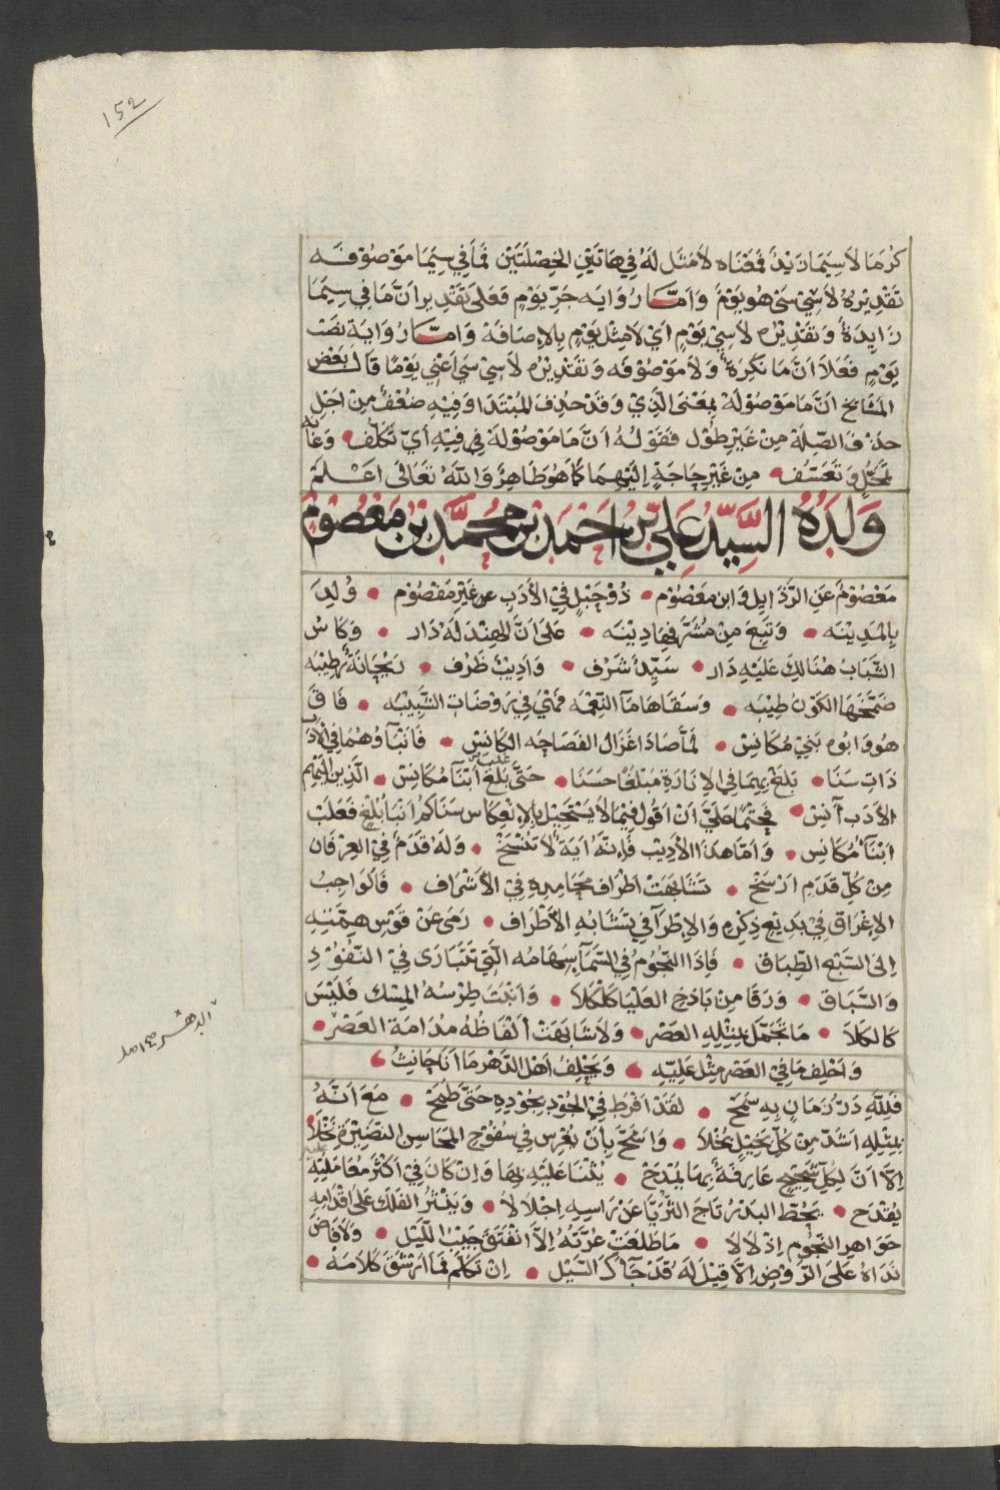 152
كرما لا سيما زيد فمعناه لا مثل له في هاتين الخصلتين فما في سيما موصوفه
تقديره لا سي شي هو يوم واما رواية جر يوم فعلى تقدير ان ما في سيما
زايدة وتقديره لا سي يوم اي لا مثل يوم بالاضافة واما رواية نصب
يوم فعلا ان ما نكرة ولا موصوفه وتقديره لا سي شي اعني يوما قال بعض
المشايخ ان ما موصولة بمعنى الذي وقد حذف المبتدا وفيه ضعف من اجل
حذف الصلة من غير طول فقوله ان ما موصولة في فيه اي تكلف وغاية
تمحل وتعسف من غير حاجة اليهما كما هو ظاهر والله تعالى اعلم
ولده السيد علي بن احمد بن محمد بن معصوم
معصوم عن الرذايل وابن معصوم ذو حبل في الأدب غير مفصوم ولد
بالمدينه ونبع من مشرفها دينه على ان الهند له دار وكاس
الشباب هنالك عليه دار سيد شرف واديب ظرف ريحانة رطيبه
ضمخها الكون طيبه وسقاها ماء النعمه فهي في روضات الشبيبه فاق
هو وابوه بني مكانس لما صادا غزال الفصاحه الكانس فانباوهما في الاد
ذات سنا بلغ بهما في الانارة مبلغا حسنا حتى بلغ ابنا مكانس الذين اليهم
الأدب آنس فحتما علي ان اقول فيما لا يستحيل بالانعكاس سناكم انبا بلغ فعلت
ابناء مكانس واما هذا الأديب فانه اية لا تنسخ وله قدم في العرفان
من كل قدم ارسخ تشابهت اطراف محامده في الأشراف فالواجب
الاغراق في بديع ذكره والاطراء في تشابه الأطراف رمى عن قوس همته
الى السبع الطباق فاذا النجوم في السماء سهامه التي تتبارى في النفوذ
والسباق ورقا من باذخ العليا كلكلا وانبت طرسه المسك فليس
كالكلا ما تجمل بمثله العصر ولا شابهت ألفاظه مدامة العصر
واحلف ما في العصر مثل عليه ويحلف اهل الدهر ما انا حانث
فلله در زمان به سمح لقد افرط في الجود بجوده حتى طمح مع انه
بمثله اشد من كل بخيل بخلا واشح بأن يغرس في سفوح المحاسن النضيرة نخلا
الا ان لكل شحيح عارفة بها يمتدح يثنا عليه بها وان كان في اكثر معاملته
يقتدح يحط البدر تاج الثريا عن راسه اجلالا وينثر الفلك على اقدامه
جواهر النجوم اذلالا ما طلعت غرته الا انفتق جيب الليل ولا فاض
نداه على الروض الا قيل له قد جاك السيل ان تكلم فما ارشق كلامه